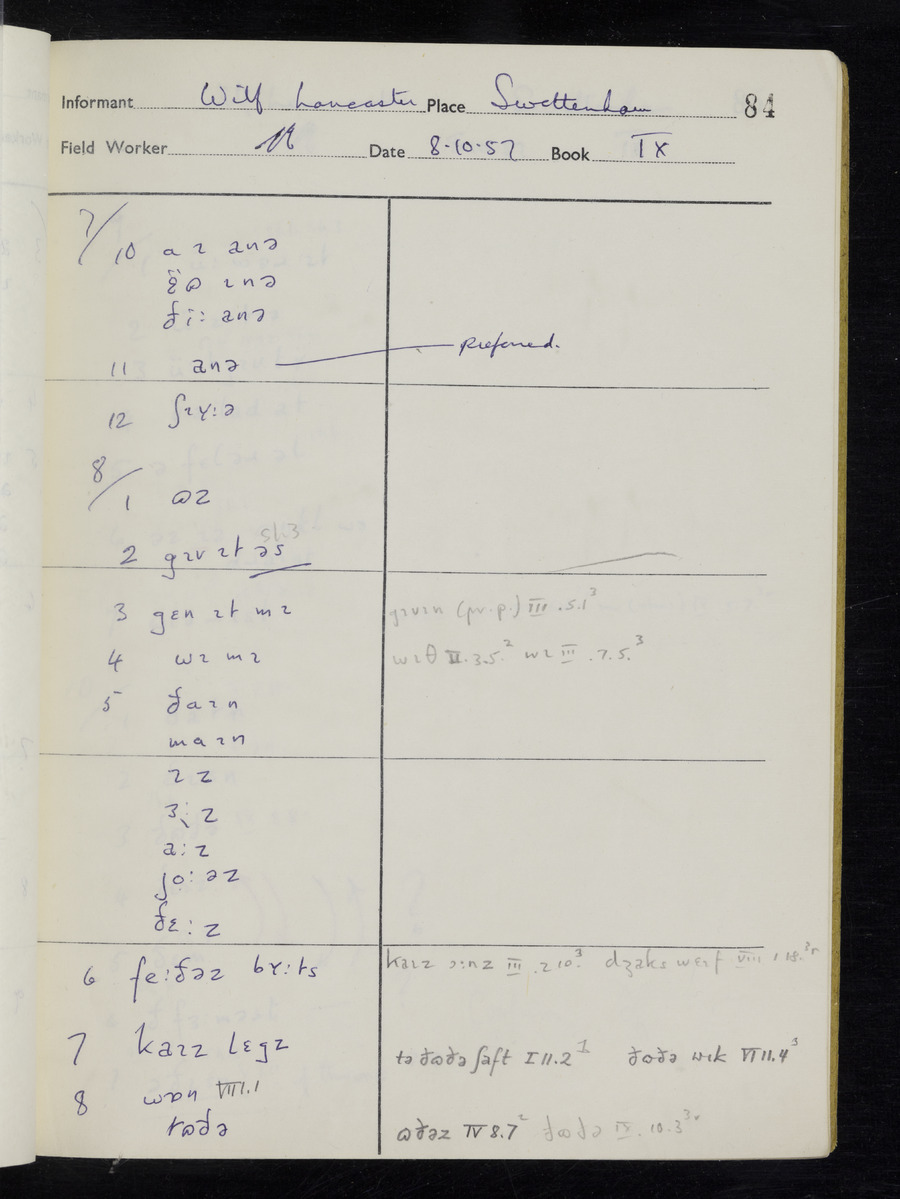 Informant Wilf Lancaster Place Swettenham 84
Field Worker Date 8·10·57 Book IX
7/
10 a ɪ anə
ɪnə
ðï: anə
11 anə preferred.
12 ʃɪʏ:ə
8/
1 ɷz
2 gɪv ɪt əs
3 gɛn ɪt mɪ gɪvɪn (pr.p.) III .5.1³
4 wɪ mɪ wɪθ II.3.5.² wɪ III .7.5.³
5 ðaɪn
maɪn
ɪz
ɜ:z
a:z
jo:əz
ðɛ:z
6 fe:ðəz bʏ:ts kaɪz ɔ:nz III .2 10.³ dʒaks wɛɪf VIII 1 18.³
7 kaɪz lɛgz tə ðɷðə ʃaft I 11.2¹ ðɷðə wɪk VI 11.4³
8 wɒn VII.1.1
tɷðə ɷðəz IV 8.7² ðɷðə IX. 10.3³